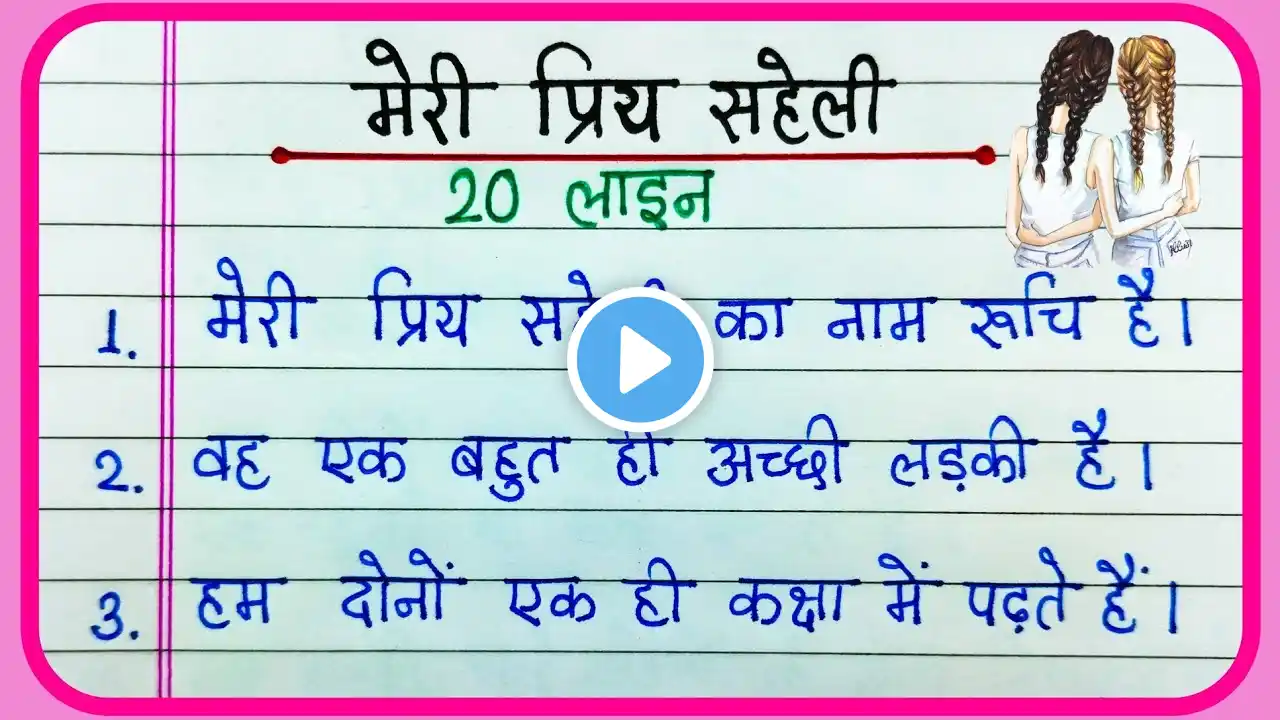 मेरी प्रिय सहेली
20 लाइन
1. मेरी प्रिय सहेली का नाम रूचि है।
2. वह एक बहुत ही अच्छी लड़की है।
3. हम दोनों एक ही कक्षा में पढ़ते हैं।